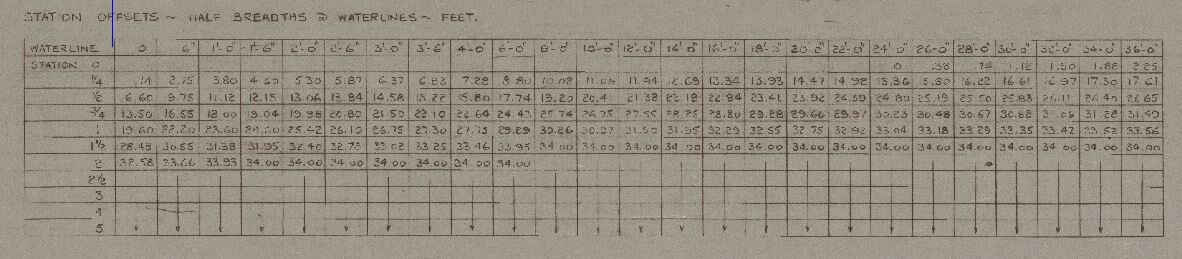 STATION OFFSETS ~ HALF BREADTHS @ WATERLINES ~ FEET.
WATERLINE 0 6" 1'-0" 1'-6" 2'-0" 2'-6" 3'-0" 3'-6" 4'-0" 6'-0" 8'-0" 10'-0" 12'-0" 14'-0" 16'-0" 18'-0" 20'-0" 22'-0" 24'-0" 26'-0" 28'-0" 30'-0" 32'-0" 34'-0" 36'-0"
STATION 0 0 .38 .74 1.12 1.50 1.88 2.25
1/4 .14 2.75 3.80 4.60 5.30 5.87 6.37 6.83 7.28 8.80 10.02 11.04 11.94 12.68 13.34 13.93 14.47 14.92 15.36 15.80 16.22 16.61 16.97 17.30 17.61
1/2 6.60 9.75 11.12 12.15 13.06 13.84 14.58 15.22 15.80 17.74 19.20 20.41 21.38 22.18 22.84 23.41 23.92 24.39 24.80 25.19 25.50 25.83 26.11 26.40 26.65
3/4 13.50 16.55 18.00 19.04 19.98 20.80 21.50 22.10 22.64 24.43 25.74 26.75 27.55 28.25 28.80 29.28 29.66 29.97 30.23 30.48 30.67 30.88 31.28 31.49
1 19.60 22.20 23.60 24.60 25.42 26.10 26.75 27.30 27.75 29.29 30.26 31.50 31.95 32.29 32.55 32.75 32.92 33.04 33.18 33.29 33.35 33.42 33.52 33.56
1 1/2 28.48 30.55 31.38 31.95 32.40 32.78 33.02 33.25 33.46 33.95 34.00 34.00 34.00 34.00 34.00 34.00 34.00 34.00 34.00 34.00 34.00 34.00 34.00 34.00 34.00
2 32.58 33.66 33.93 34.00 34.00 34.00 34.00 34.00 34.00 34.00
2 1/2
3
4
5